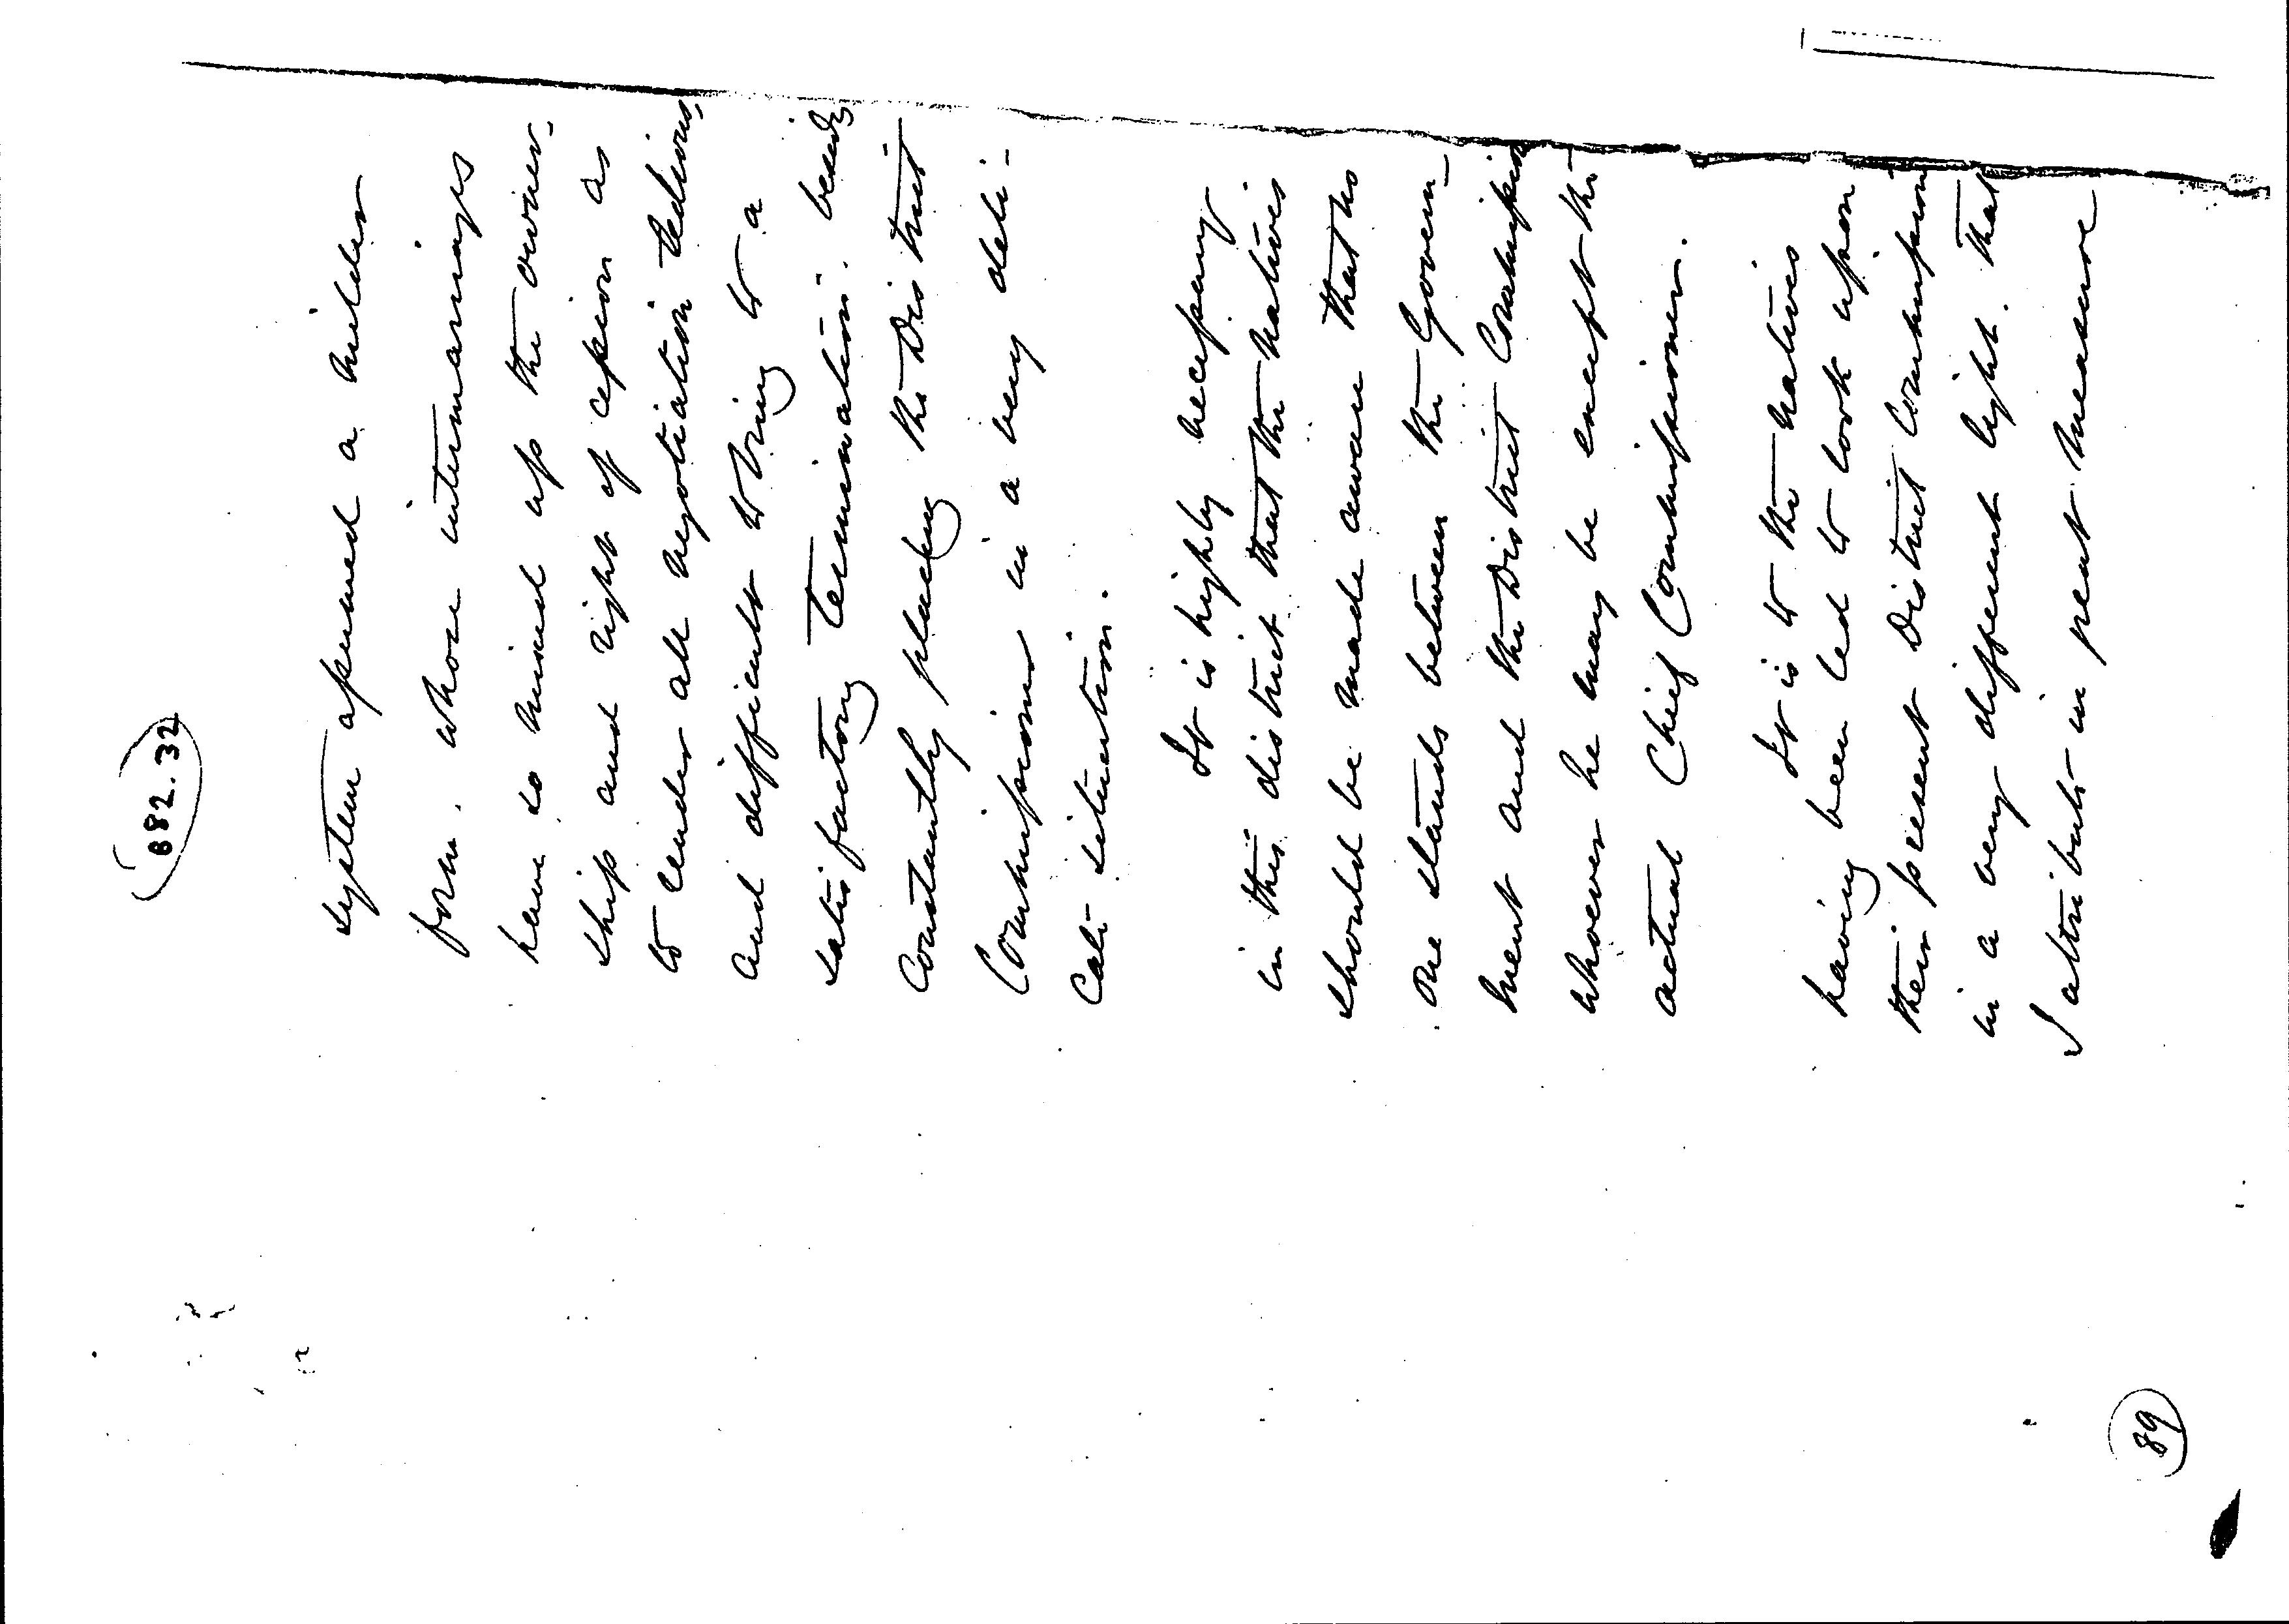 882.32
system assumed a milder
form, whose intermarriages
have so mixed up the owner-
ship and right of cession as
to render all negotiation tedious,
and difficult to bring to a
satisfactory termination: besides
constantly placing the District
Commissioner in a very deli-
cate situation.
It is highly necessary
in this district that the natives
should be made aware that no
one stands between the Govern-
ment and the District Commissioner
whoever he may be except the
actual Chief Commissioner.
It is to the natives
having been led to look upon
their present District Commissioner
in a very different light, that
I attribute in great measure
89